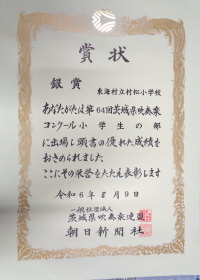 賞状
銀賞
東海村立村松小学校
あなたがたは第64回茨城県吹奏楽
コンクール小学生の部
に出場し頭書の優れた成績を
おさめられました
ここにその栄誉をたたえ表彰します
令和6年8月9日
一般社団法人
茨城県吹奏楽連盟
朝日新聞社